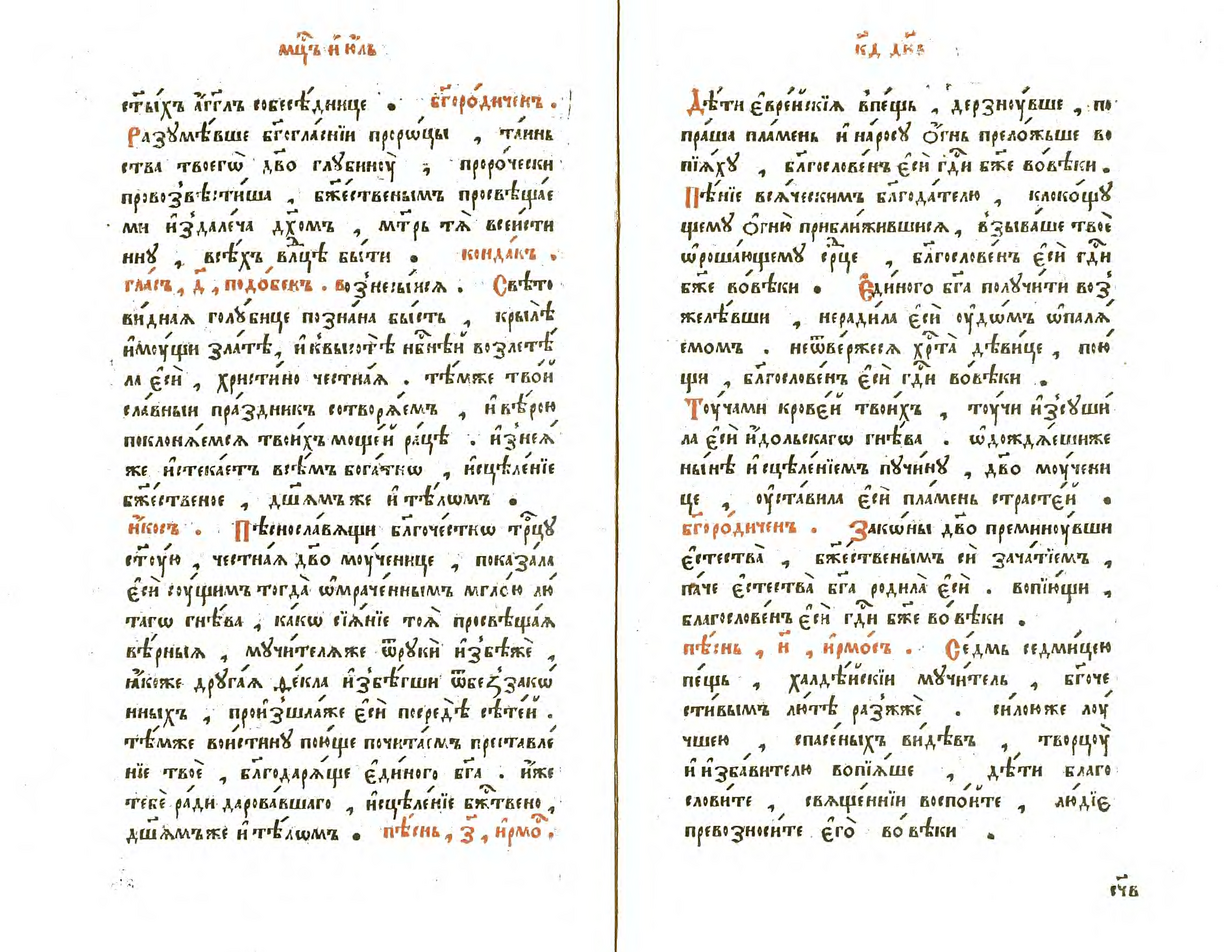 мⷭ҇цъ и҆ ю҆ль
ст҃ы́хъ а҆́гг҃лъ собесѣ́днице . бг҃оро́диченъ .
Разꙋмѣ́вше бг҃огла́снїи прорѡ́цы , та́инь
ства твоегѡ̀ дв҃о глꙋбиноу̀ , проро́чески
провозвѣстиша , бж҃е́ственымъ просвѣще
ми и҆здале́ча дх҃омъ , мт҃рь тѧ̀ всеи́сти
ннꙋ , всѣ́хъ влⷣцѣ бы́ти . конда́къ .
гла́съ , д҃ , подо́бенъ . вознесы́исѧ . Свѣто
ви́днаѧ голꙋ́бице позна́на бы́сть , крылѣ̀
и҆мꙋ́щи зла́тѣ , и҆ къ высотѣ̀ нбⷭ҇нѣй возлетѣ́
ла є҆сѝ , христи́но честна́ѧ . тѣ́мже тво́й
сла́вныи пра́здникъ сотворѧ́емъ , и҆ вѣ́рою
поклонѧ́емсѧ твои́хъ моще́й ра́цѣ . и҆знеѧ́
же и҆стека́етъ всѣ́мъ бога́тнѡ , и҆сцѣле́нїе
бж҃е́ственое , дш҃а́мъ же и҆ тѣлѡ́мъ .
и҆́косъ . Пѣснослава́щи бл҃гоче́стнѡ трⷪ҇цꙋ
ст҃ꙋ́ю , честна́ѧ дв҃о моу́ченице , показа́ла
є҆сѝ соу́щимъ тогда̀ ѡ҆мраче́ннымъ мгло́ю лю́
тагѡ гнѣ́ва , ка́кѡ сїѧ́нїе тоѧ̀ просвѣща́ѧ
вѣ́рныѧ , мꙋчи́телѧже ѿ рꙋкѝ и҆збѣжѐ ,
ꙗ҆́коже дрꙋга́ѧ ѳе́кла и҆збѣ́гши ѿ беззако́
нныхъ , произшла́же є҆сѝ посредѣ̀ сѣ́тей .
тѣ́мже вои́стинꙋ пою́ще почита́емъ преставле́
нїе твоѐ , бл҃года́рѧще є҆ди́ного бг҃а . и҆́же
тебѐ ра́ди дарова́вшаго , и҆сцѣле́нїе бж҃твено ,
дш҃а́мъже и҆ тѣлѡ́мъ . пѣ́снь , з҃ , и҆рмо́с .
кд҃ дн҃ь
Дѣ́ти є҆вре́йскїѧ в пе́щь , дерзноу́вше , по
пра́ша пла́мень и҆ на росꙋ ѻ҆́гнь прело́жьше во
пїѧ́хꙋ , благослове́нъ є҆сѝ гдⷭ҇и бж҃е во вѣ́ки .
Пѣ́нїе всѧ́ческимъ бл҃года́телю , клоко́щꙋ
щемꙋ ѻ҆гню̀ прибли́жившисѧ , взыва́ше твоѐ
ѡ҆роша́ющемꙋ ср҃це , благослове́нъ є҆сѝ гдⷭ҇и
бж҃е во вѣ́ки . Є҆ди́ного бг҃а полꙋчи́ти воз
желѣ́вши , не ради́ла є҆сѝ оу҆до́мъ ѡ҆палѧ́
емомъ . не ѿве́ржесѧ хрⷭ҇та̀ дѣви́це , пою́
щи , бл҃гослове́нъ є҆сѝ гдⷭ҇и во вѣ́ки .
Тоу́чами крове́й твои́хъ , тоу́чи и҆зсꙋши́
ла є҆сѝ и҆́дольскагѡ гнѣ́ва . ѡ҆дождѧ́еши же
ны́нѣ и҆сцѣле́нїемъ пꙋчи́нꙋ , дв҃о моу́чени
це , оу҆ста́вила є҆сѝ пла́мень страсте́й .
бг҃оро́диченъ . Зако́ны дв҃о преминоу́вши
є҆стества̀ , бж҃е́ственымъ си́ зача́тїемъ ,
па́че є҆стества̀ бг҃а родила̀ є҆сѝ . вопїю́щи ,
благослове́нъ є҆сѝ гдⷭ҇и бж҃е во вѣ́ки .
пѣ́снь , и҃ , и҆рмо́съ . Се́дмь седми́цею
пе́щь , халдѣ́йскїи мꙋчи́тель , бг҃оче
сти́вымъ лю́тѣ разжжѐ . си́лоюже лоу́
чшею , спасе́ныхъ ви́дѣвъ , творцоу̀
и҆ и҆зба́вителю вопїѧ́ше , дѣ́ти благо
слови́те , свѧще́ннїи воспо́йте , лю́дїе
превозноси́те є҆го̀ во вѣ́ки .
сч҃в